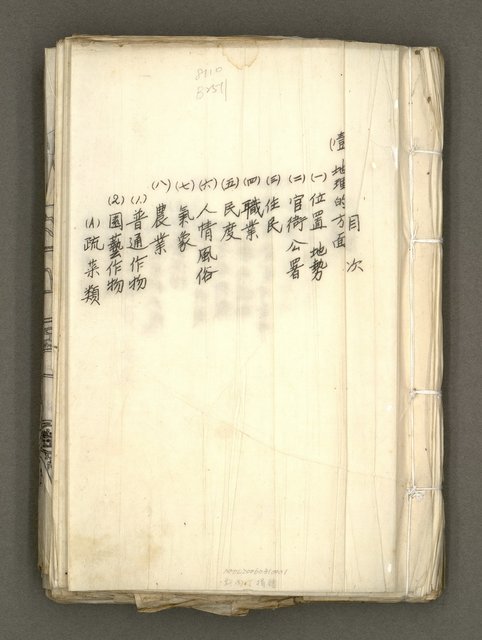 目次
(壹)地理的方面
(一)位置 地勢
(二)官衙公署
(三)住民
(四)職業
(五)民度
(六)人情風俗
(七)氣象
(八)農業
(1.)普通作物
(2.)園藝作物
(A)疏菜類